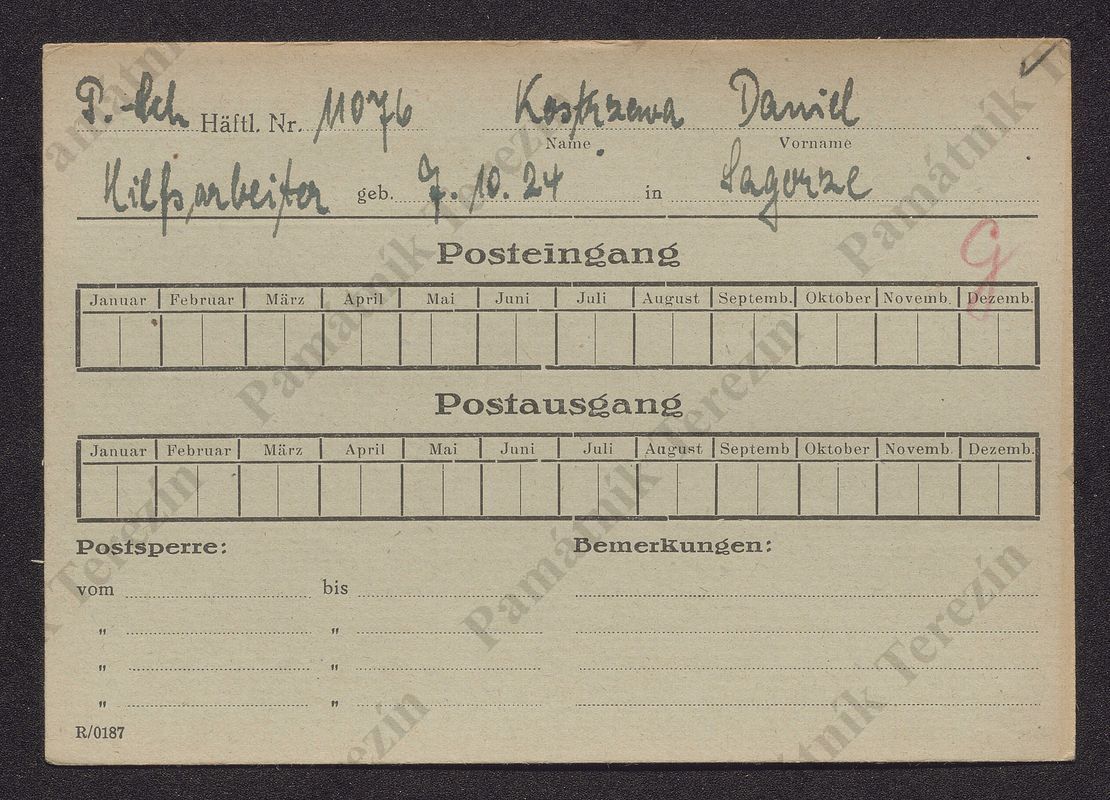 P.-Sch Häftl. Nr. 11076 Kostrzewa Daniel
Name Vorname
Hilfsarbeiter geb. 7. 10. 24 in Sagorze
Posteingang
Januar Februar März April Mai Juni Juli August Septemb. Oktober Novemb. Dezemb.
g
Postausgang
Januar Februar März April Mai Juni Juli August Septemb Oktober Novemb. Dezemb.
Postsperre: Bemerkungen:
vom bis
" "
" "
" "
R/0187
Památník Terezín